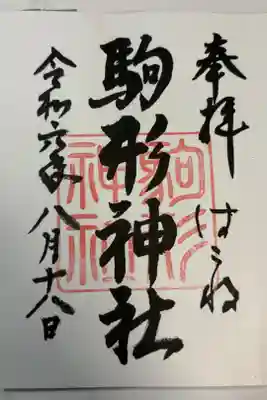 奉拝
はこね
駒形神社
駒形
神社
令和六年八月十八日